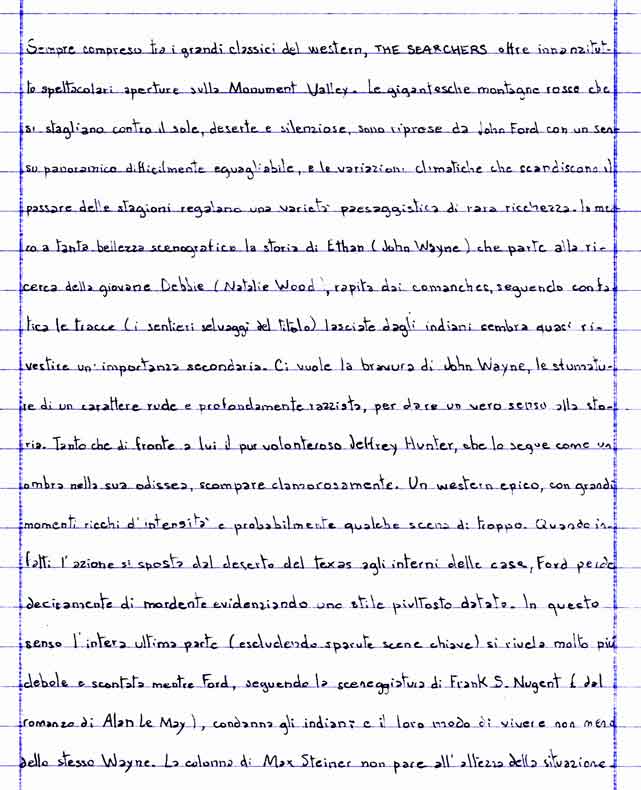 Sempre compreso tra i grandi classici del western, THE SEARCHERS offre innanzitut-
to spettacolari aperture sulla Monument Valley. Le gigantesche montagne rosse che
si stagliano contro il sole, deserte e silenziose, sono riprese da John Ford con un sen
so panoramico difficilmente eguagliabile, e le variazioni climatiche che scandiscono il
passare delle stagioni regalano una varietà paesaggistica di rara ricchezza. In mez
zo a tanta bellezza scenografica la storia di Ethan (John Wayne) che parte alla ri-
cerca della giovane Debbie (Natalie Wood), rapita dai comanches, seguendo con fa
tica le tracce (i sentieri selvaggi del titolo) lasciate dagli indiani sembra quasi ri-
vestire un'importanza secondaria. Ci vuole la bravura di John Wayne, le sfumatu-
re di un carattere rude e profondamente razzista, per dare un vero senso alla sto-
ria. Tanto che di fronte a lui il pur volonteroso Jeffrey Hunter, che lo segue come un
ombra nella sua odissea, scompare clamorosamente. Un western epico, con grandi
momenti ricchi d'intensità e probabilmente qualche scena di troppo. Quando in-
fatti l'azione si sposta dal deserto del texas agli interni delle case, Ford perde
decisamente di mordente evidenziando uno stile piuttosto datato. In questo
senso l'intera ultima parte (escludendo sparute scene chiave) si rivela molto più
debole e scontata mentre Ford, seguendo la sceneggiatura di Frank S. Nugent (dal
romanzo di Alan Le May), condanna gli indiani e il loro modo di vivere non meno
dello stesso Wayne. La colonna di Max Steiner non pare all'altezza della situazione.